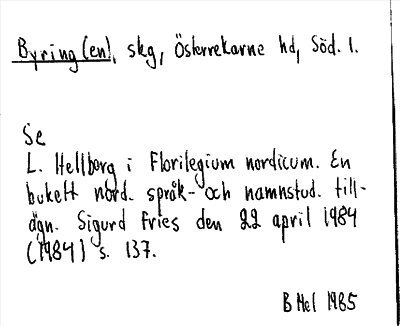 Byring(en), skg, Österrekarne hd, Söd. l.
Se
L. Hellberg i Florilegium nordicum. En
bukett nord. språk- och namnstud. till-
ägn. Sigurd Fries den 22 april 1984
(1984) s. 137.
B Hel 1985